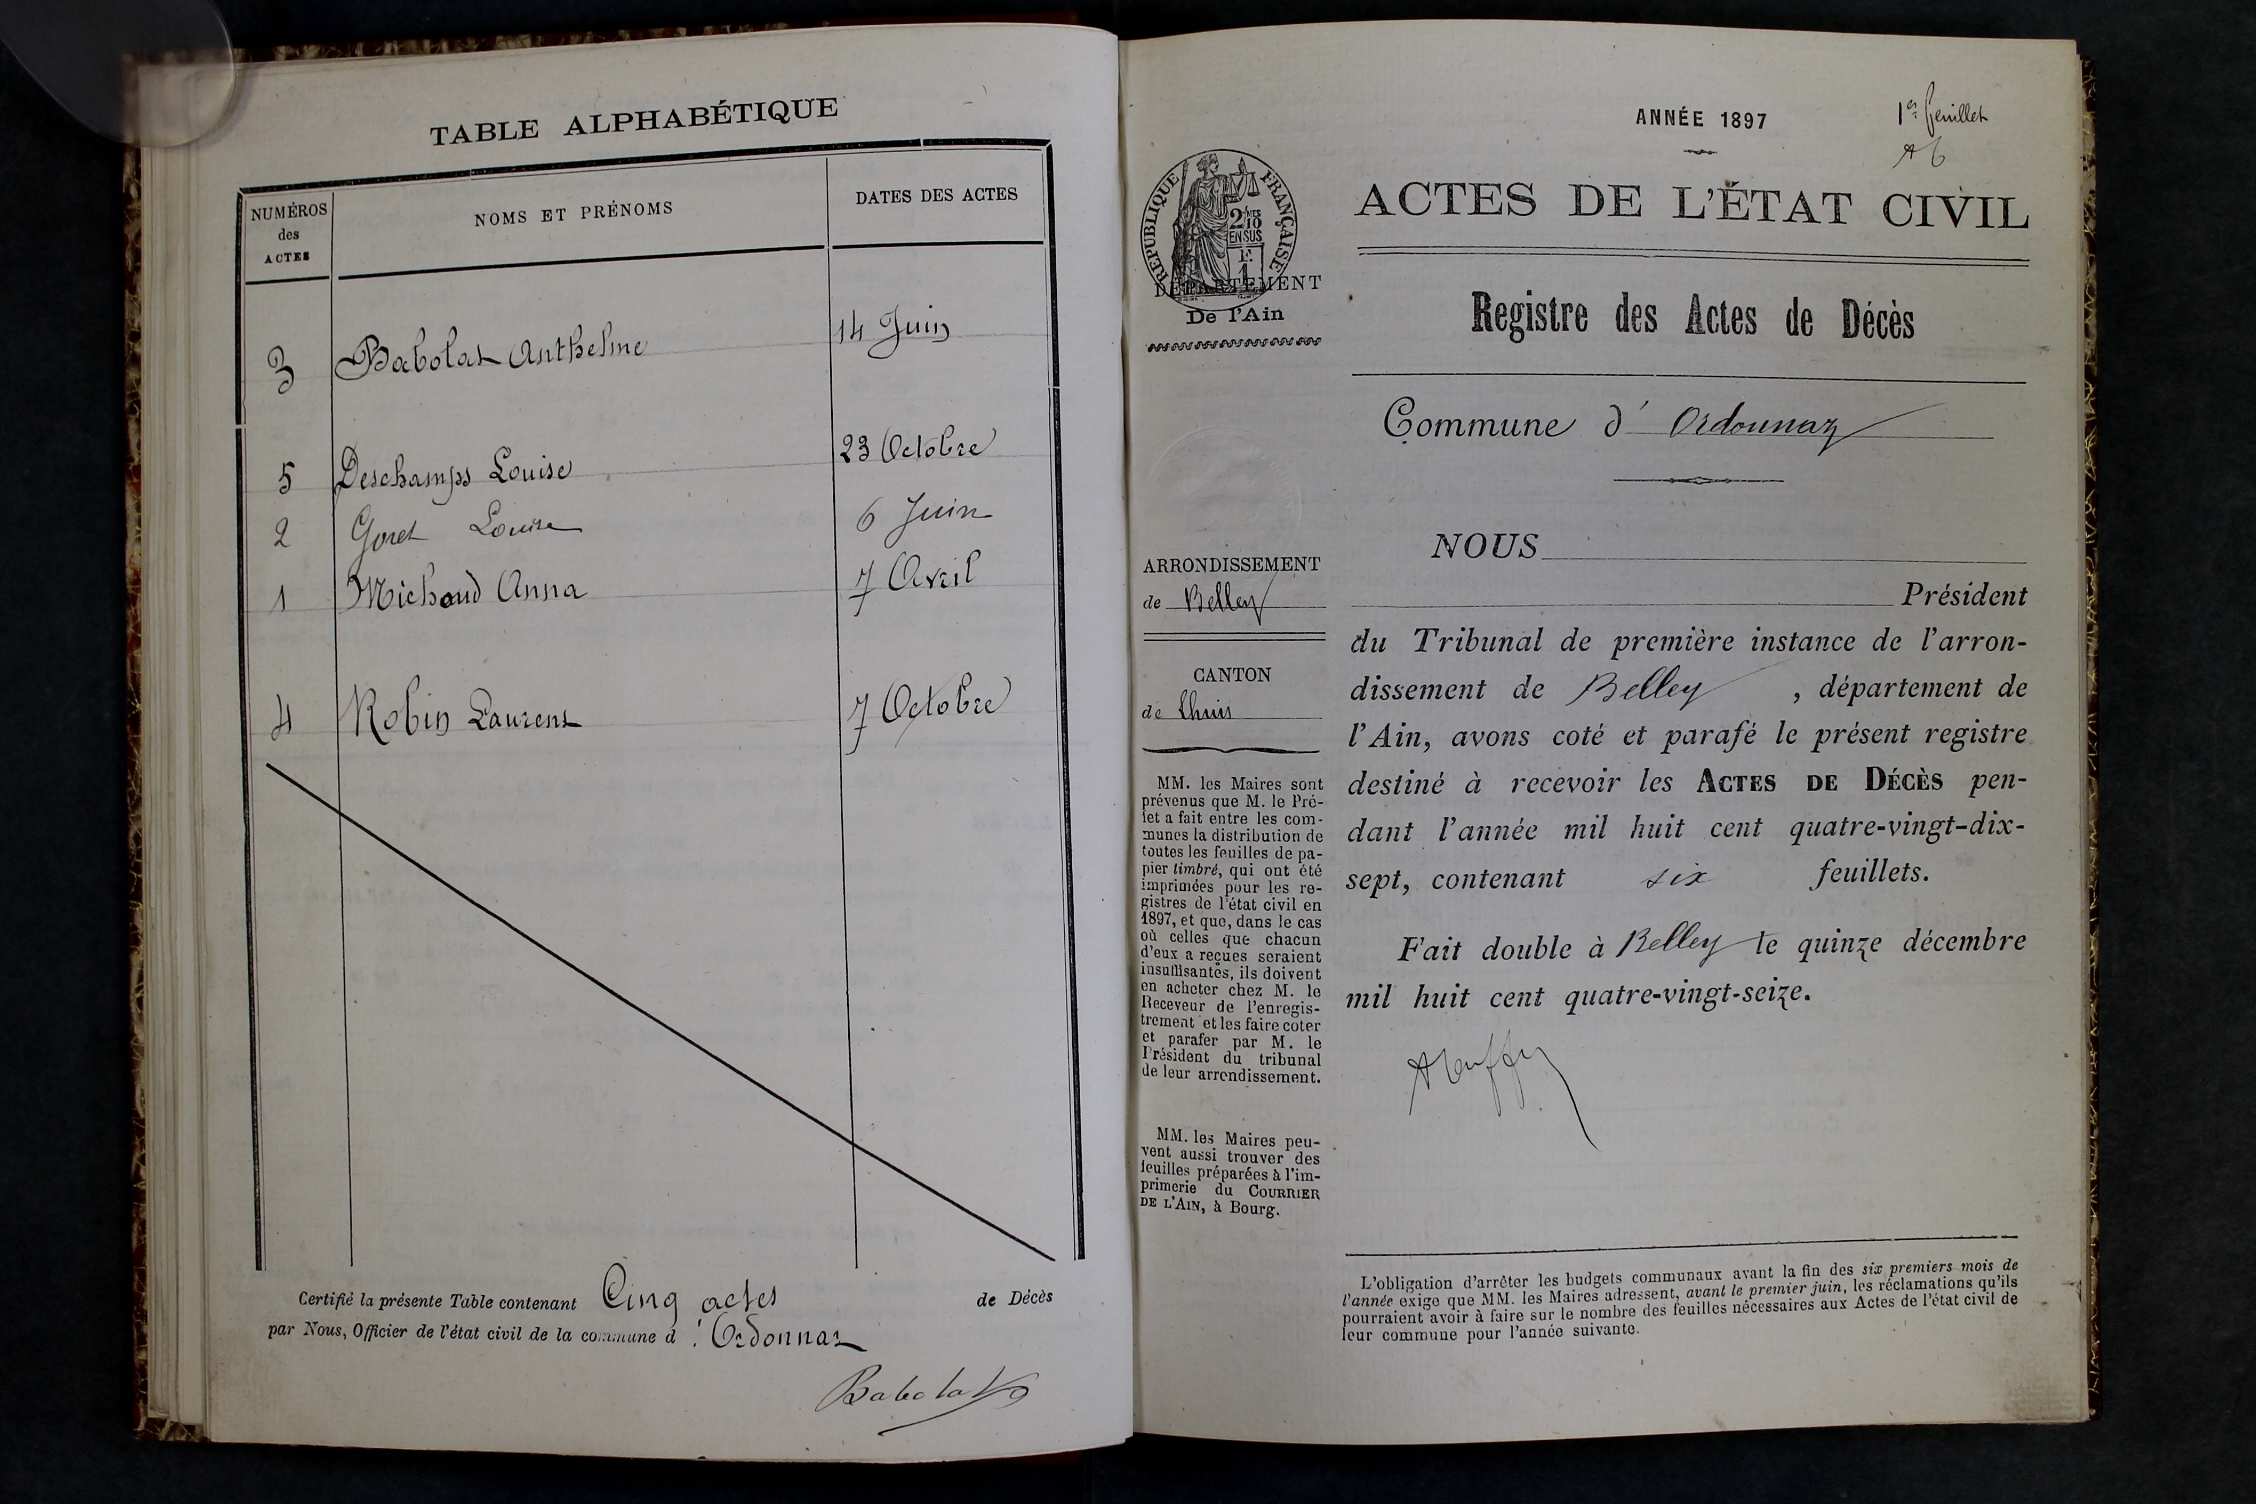 TABLE ALPHABÉTIQUE
NUMÉROS
des
ACTES
NOMS ET PRÉNOMS
DATES DES ACTES
3 Babolat Anthelme 14 Juin
5 Deschamps Louise 23 Octobre
2 Goret Louise 6 Juin
1 Michaud Anna 7 Avril
4 Robin Laurent 7 Octobre
Certifié la présente Table contenant Cinq actes de Décès
par Nous, Officier de l'état civil de la commune d'Ordonnaz
Babolat
ANNÉE 1897
1er feuillet
RÉPUBLIQUE FRANÇAISE
2/10 MES
EN SUS
F.
1
DÉPARTEMENT
De l'Ain
ARRONDISSEMENT
de Belley
CANTON
de Lhuis
MM. les Maires sont
prévenus que M. le Pré-
fet a fait entre les com-
munes la distribution de
toutes les feuilles de pa-
pier timbré, qui ont été
imprimées pour les re-
gistres de l'état civil en
1897, et que, dans le cas
où celles que chacun
d'eux a reçues seraient
insuffisantes, ils doivent
en acheter chez M. le
Receveur de l'enregis-
trement et les faire coter
et parafer par M. le
Président du tribunal
de leur arrondissement.
MM. les Maires peu-
vent aussi trouver des
feuilles préparées à l'im-
primerie du COURRIER
DE L'AIN, à Bourg.
ACTES DE L'ÉTAT CIVIL
Registre des Actes de Décès
Commune d'Ordonnaz
NOUS
Président
du Tribunal de première instance de l'arron-
dissement de Belley, département de
l'Ain, avons coté et parafé le présent registre
destiné à recevoir les ACTES DE DÉCÈS pen-
dant l'année mil huit cent quatre-vingt-dix-
sept, contenant six feuillets.
Fait double à Belley le quinze décembre
mil huit cent quatre-vingt-seize.
L'obligation d'arrêter les budgets communaux avant la fin des six premiers mois de
l'année exige que MM. les Maires adressent, avant le premier juin, les réclamations qu'ils
pourraient avoir à faire sur le nombre des feuilles nécessaires aux Actes de l'état civil de
leur commune pour l'année suivante.